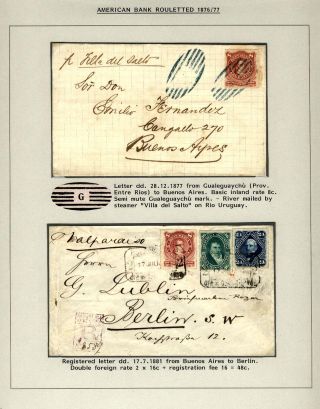 AMERICAN BANK ROULETTED 1876/77
p Villa del Salto
Sor Don
Emilio Fernandez
Cangallo 270
Buenos Ayres
Letter dd. 28.12.1877 from Gualeguaychú (Prov.
Entre Rios) to Buenos Aires. Basic inland rate 8c.
Semi mute Gualeguaychú mark. - River mailed by
steamer "Villa del Salto" on Rio Uruguay.
G
Valparaiso
Herrn
G. Lublin
Berlin. S. W
12.
R
Registered letter dd. 17.7.1881 from Buenos Aires to Berlin.
Double foreign rate 2 x 16c + registration fee 16 = 48c.